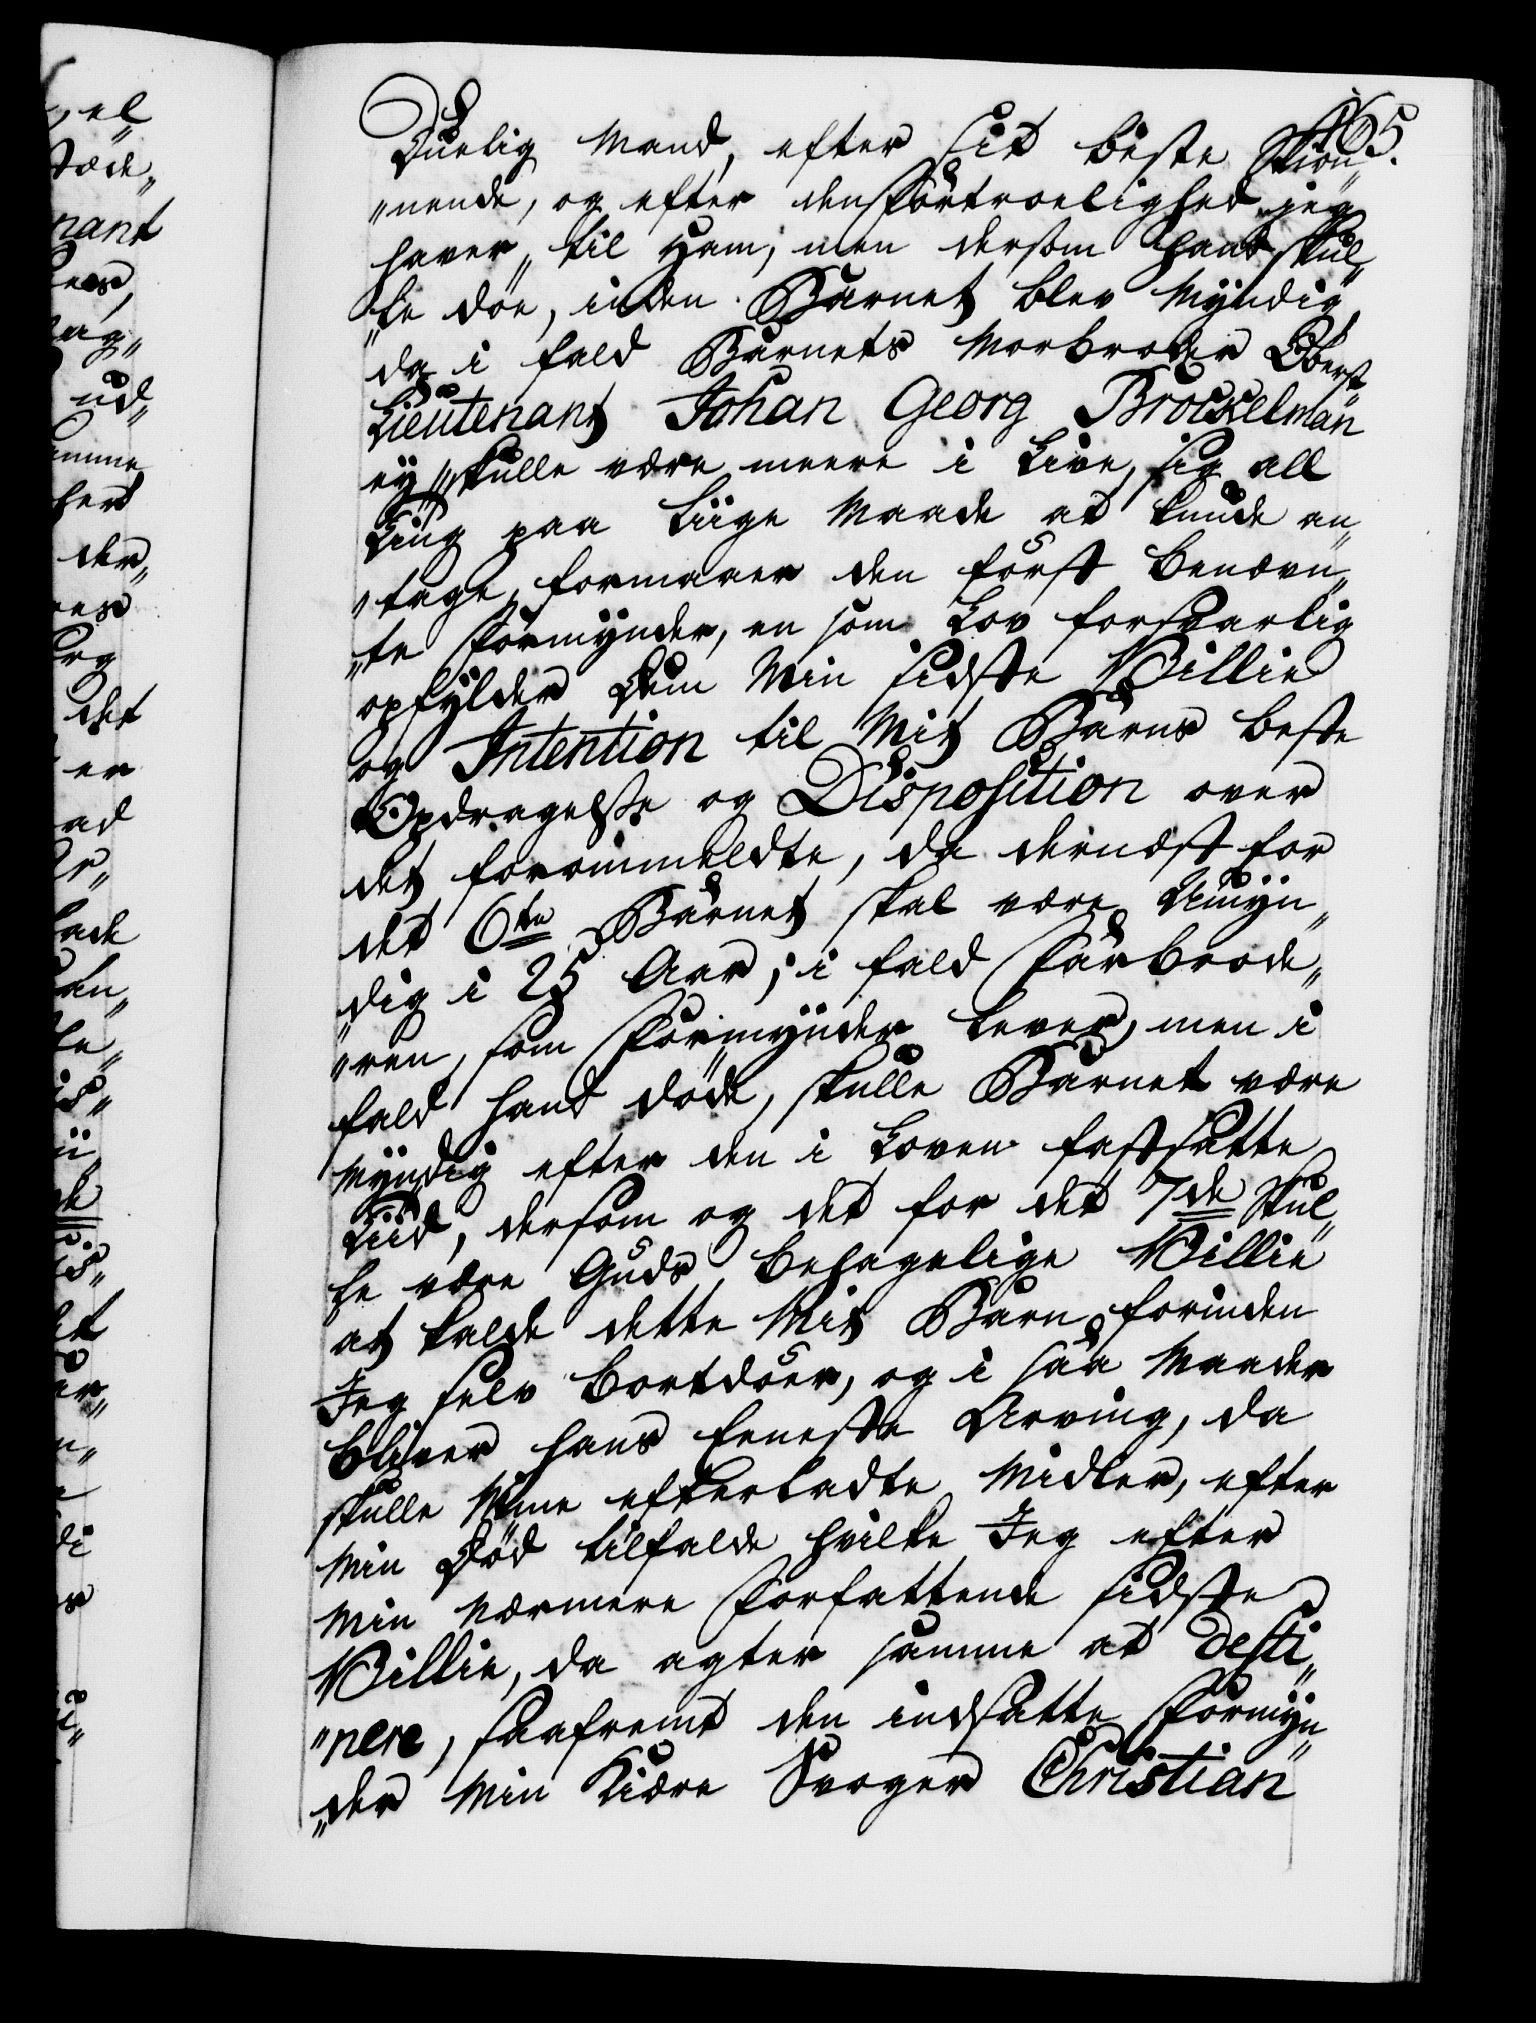 465.
Duelig Mand, efter sit beste Skiøn„
„nende, og efter den Fortroelighed jeg
haver til Ham; men dersom hand skul„
„le døe, inden Barnet blev Myndig
da i fald Barnets Morbroder Oberst
Lieutenant Johan Georg Brockelman
ey skulle være meere i Live, sig all
Ting paa liige Maade at kunde an„
„tage, formaaer den først benævn„
„te Formynder, en som Lov forsvarlig
opfylder Dem Min sidste Villie
og Intention til Mit Barns beste
Opdragelse og Disposition over
det forommeldte, da dernæst for
det 6te Barnet skal være Umyn„
dig i 25 Aar; i fald Farbrode„
„ren, som Formynder lever, men i
fald hand døde, skulle Barnet være
Myndig efter den i Loven fastsatte
Tiid, dersom og det for det 7de Skul„
le være Guds behagelige Villie
at kalde dette Mit Barn forinden
Jeg selv bortdøer, og i saa Maader
bliver hans Eeneste Arving, da
skulle Mine efterladte Midler, efter
Min Død tilfalde hvilke Jeg efter
Min nærmere Forfattende sidste
Villie, da agter samme at desti„
„nere, saafremt den indsatte Formyn„
„der Min Kiære Svoger Christian